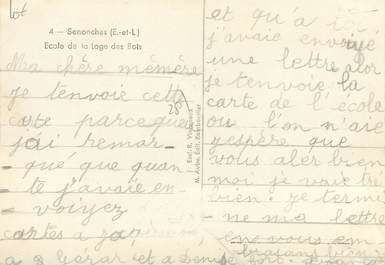 lot
4 - Senonches (E.-et-L.)
Ecole de la Loge des Bois
Ma chère mémère
je tenvoie cette
carte parceque
jai remar-
qué que quan-
te j'avaie en-
voiyez
cartes a
a Gérar et a Denise
et qu'a
j'avaie envoiye
une lettre alor
je tenvoie la
carte de l'école
ou l'on n'aie
jespère que
vous aler bien
moi je vaie trè
bien. je termi-
ne ma lettre
en vous em-
brasant bien
28F